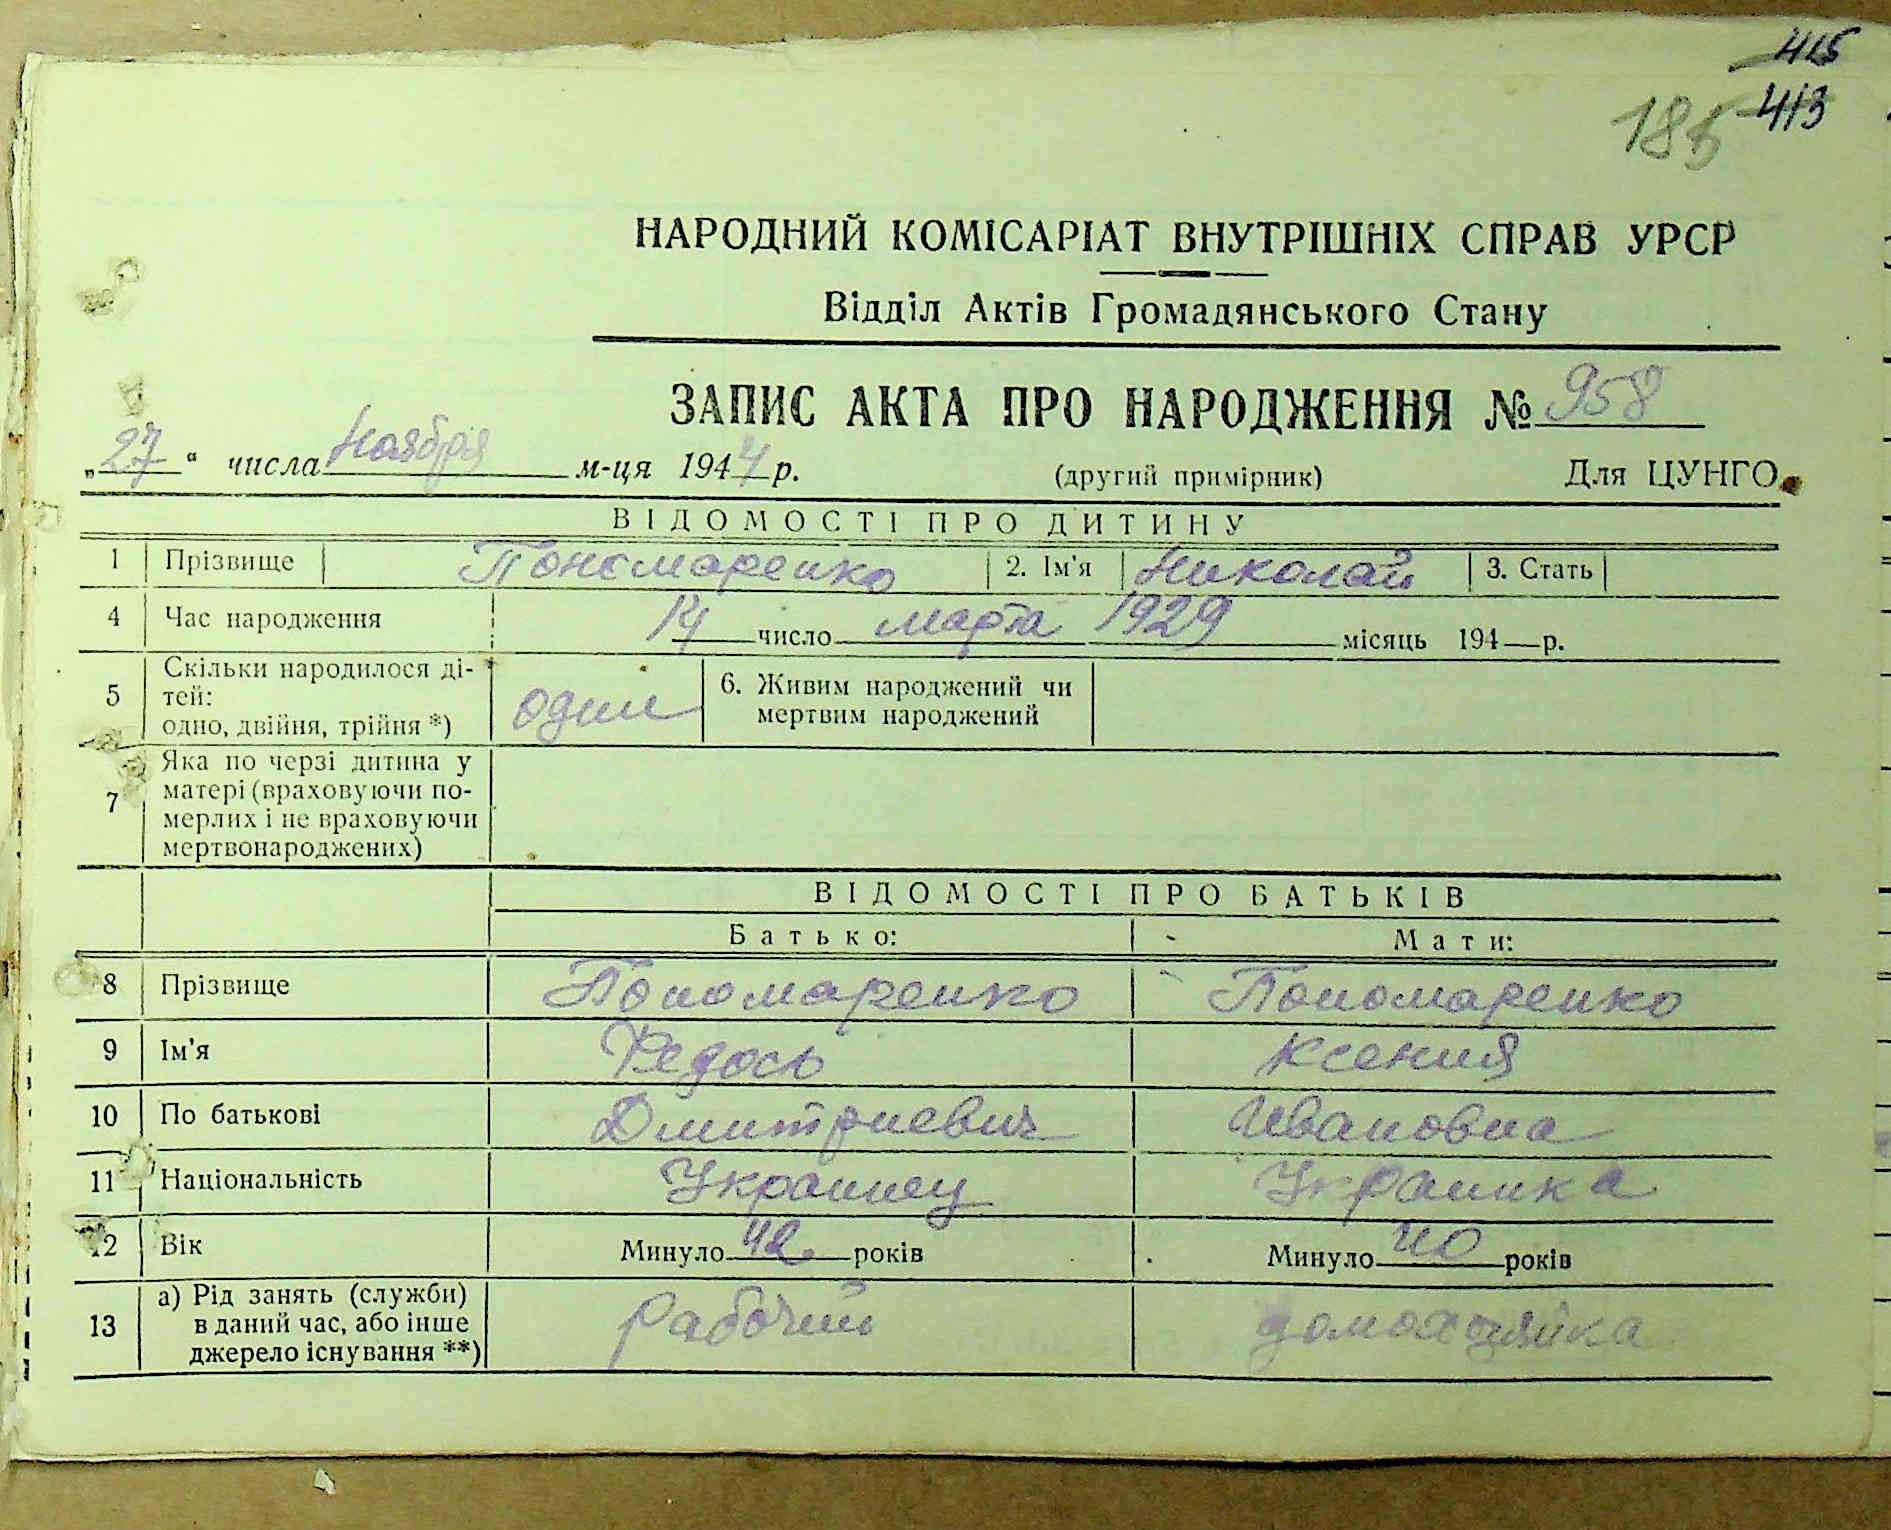 415
413
185
НАРОДНИЙ КОМІСАРІАТ ВНУТРІШНІХ СПРАВ УРСР
Відділ Актів Громадянського Стану
ЗАПИС АКТА ПРО НАРОДЖЕННЯ № 958
„27“ числа Ноября м-ця 1944 р. (другий примірник) Для ЦУНГО.
ВІДОМОСТІ ПРО ДИТИНУ
1 Прізвище Пономаренко 2. Ім'я Николай 3. Стать
4 Час народження 14 число марта 1929 місяць 194—р.
5 Скільки народилося ді-
тей:
одно, двійня, трійня *) один 6. Живим народжений чи
мертвим народжений
7 Яка по черзі дитина у
матері (враховуючи по-
мерлих і не враховуючи
мертвонароджених)
ВІДОМОСТІ ПРО БАТЬКІВ
Батько: Мати:
8 Прізвище Пономаренко Пономаренко
9 Ім'я Федось Ксения
10 По батькові Дмитриевич Ивановна
11 Національність Украинец Украинка
12 Вік Минуло 42 років Минуло 40 років
13 а) Рід занять (служби)
в даний час, або інше
джерело існування **) Рабочий домохозяйка